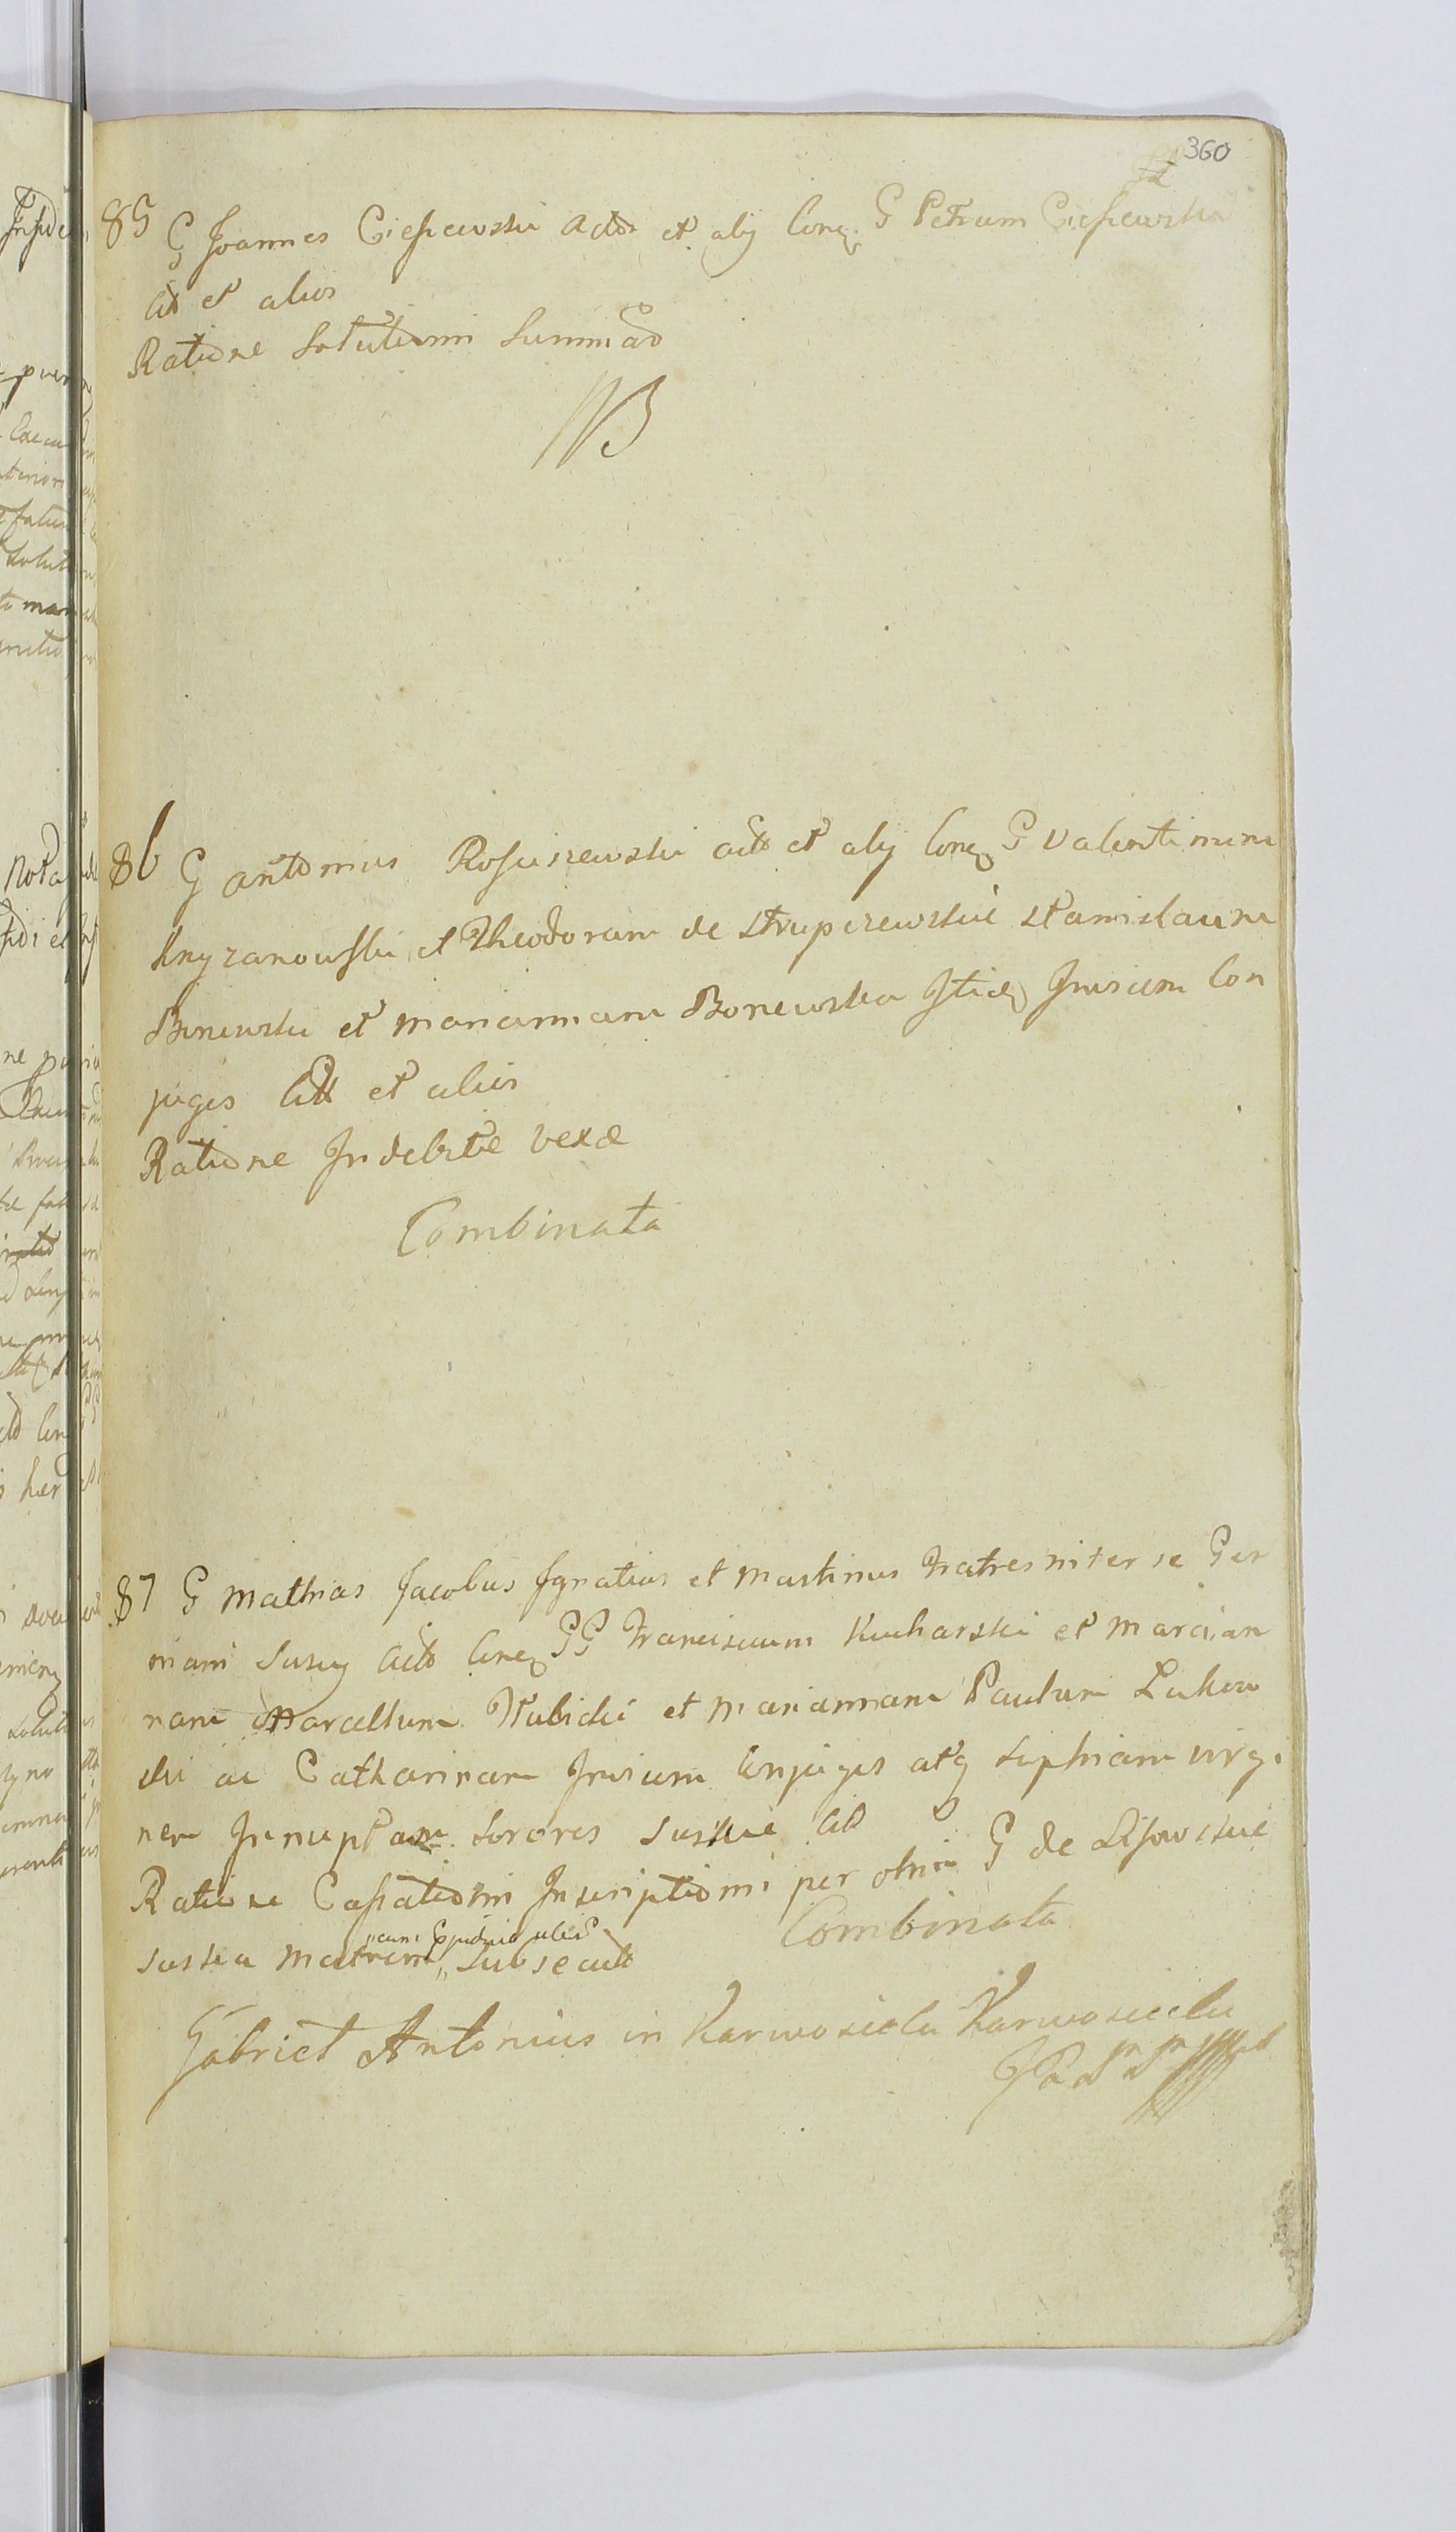 360
85 G Joannes Ciessewski Actor et alij Conq G Petrum Ciessewski
Cit et alios
Ratione Solutionis Summae
NB
86 G Antonius Rosciszewski act et alij Conq G Valentinum
Krzyzanowski et Theodoram de Strupczewskie Stanislaum
Bonewski et Mariannam Bonewska Itidq Invicem Con
juges Citt et alios
Ratione Indebitae vexae
Combinata
87 G Mathias Jacobus Ignatius et Martinus Fratres inter se Ger
mani Suscy Act Conq GG Franciscum Kucharski et Marcian
nam Marcellum Kubicki et Mariannam Paulum Lukow
ski ac Catharinam Invicem Conjuges atq Sophiam virgi
nem Innuptam Sorores Suskie Cit
Ratione Cassationis Inscriptionis per olim G de Lisowskie
Suska Matrem „ Subsecut
Combinata
Gabriel Antonius in Karwosieki Karwosiecki